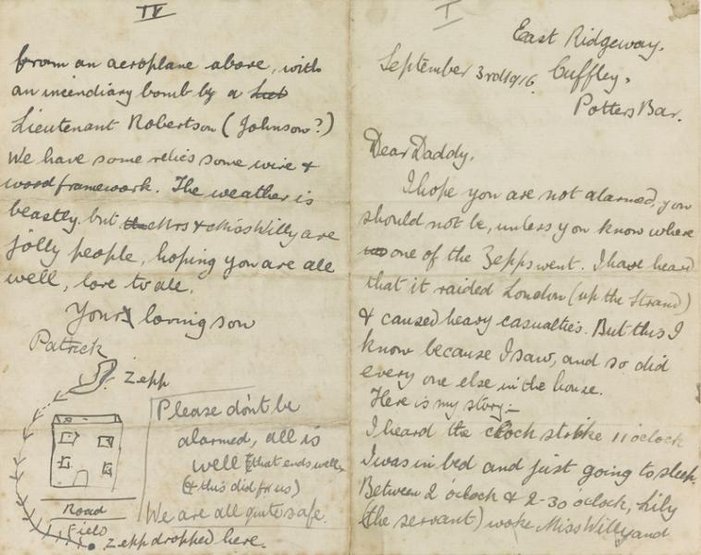 I
East Ridgeway.
September 3rd 1916. Cuffley,
Potters Bar.
Dear Daddy,
I hope you are not alarmed, you
should not be, unless you know where
one of the Zepps went. I have heard
that it raided London (up the Strand)
& caused heavy casualties. But this I
know because I saw, and so did
every one else in the house.
Here is my story:-
I heard the clock strike 11 oclock
I was in bed and just going to sleep.
Between 2 oclock & 2-30 oclock, Lily
(the servant) woke Miss Willy and
IV
from an aeroplane above, with
an incendiary bomb by a Lieut
Lieutenant Robertson (Johnson?)
We have some relics some wire &
wood framework. The weather is
beastly but the Mrs & Miss Willy are
jolly people, hoping you are all
well, love to all.
Your loving son
Patrick
Zepp
Please don't be
alarmed, all is
well (that ends well)
(& this did for us)
We are all quite safe.
Road
Field
Zepp dropped here.